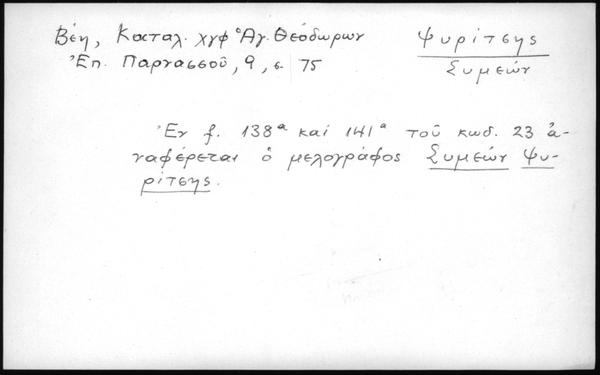 Βέη, Καταλ. χγφ Ἁγ. Θεόδωρων
Ἐπ. Παρνασσοῦ, 9, σ. 75
Ψυρίτσης
Συμεών
Ἐν f. 138ᵃ καί 141ᵃ τοῦ κωδ. 23 ἀ-
ναφέρεται ὁ μελογράφος Συμεών Ψυ-
ρίτσης.